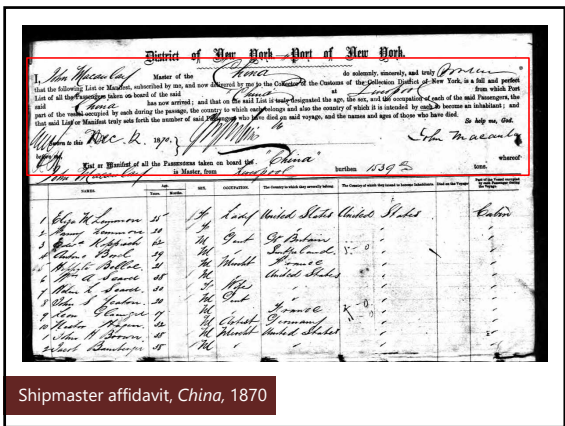 District of New York—Port of New York.
I, John Macaulay Master of the China do solemnly, sincerely, and truly
that the following List or Manifest, subscribed by me, and now delivered by me to the Collector of the Customs of the Collection District of New York, is a full and perfect
List of all the Passengers taken on board of the said China at Liverpool from which Port
said China has now arrived; and that on the said List is truly designated the age, the sex, and the occupation of each of the said Passengers, the
part of the vessel occupied by each during the passage, the country to which each belongs and also the country of which it is intended by each to become an inhabitant; and
that said List or Manifest truly sets forth the number of said Passengers who have died on said voyage, and the names and ages of those who have died.
So help me, God.
Sworn to this Dec. 12 1870. John Macaulay
before me
List or Manifest of all the Passengers taken on board the "China" whereof
John Macaulay is Master, from Liverpool burthen 1539 tons.
NAMES. Age. Years. Months. SEX. OCCUPATION. The Country to which they severally belong. The Country of which they intend to become Inhabitants Died on the Voyage Part of the Vessel occupied by each Passenger during the Voyage.
1 Eliza M Lummon 25 F Lady United States United States Cabin
2 Fanny Lummon 20 F
3 62 M Gent Gt Britain
4 29 M Switzerland
5 21 M Mercht France
6 Wm A Seave 28 M United States
7 L Seave 20 F Wife
8 John S Yeaton 20 M Gent
9 Leon 17 M France
10 Hagen 32 M Artist Germany
1 John H Brown 25 M Mercht United States
2 Jacob Bamberger 25 M
Shipmaster affidavit, China, 1870